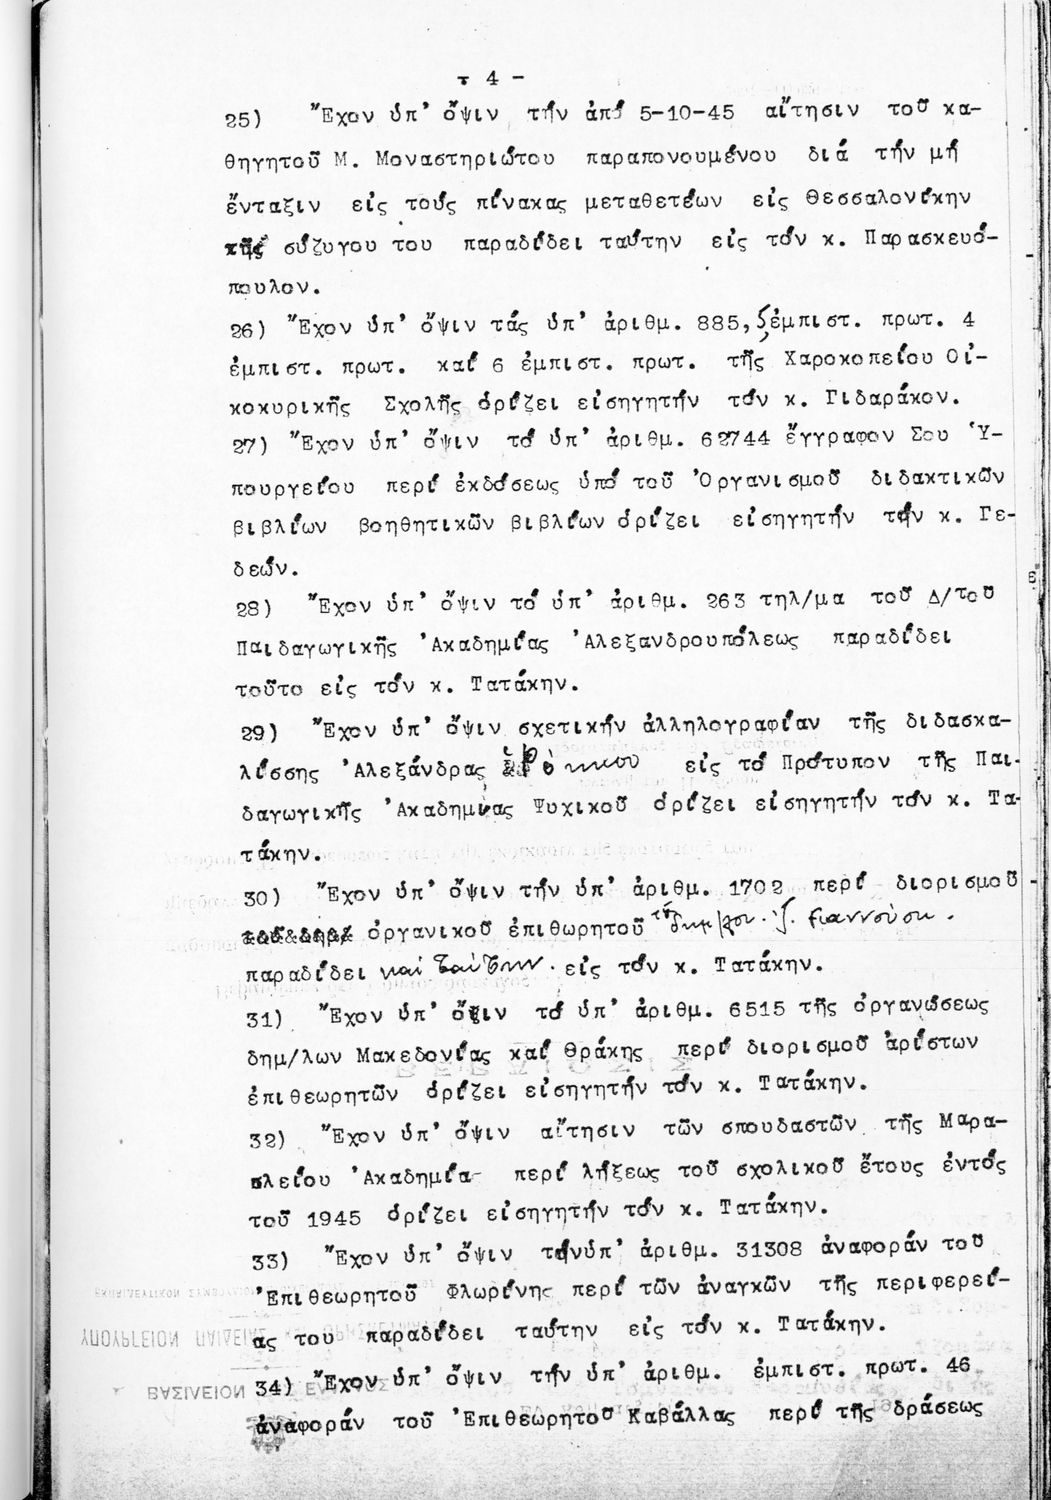 - 4 -
25) Ἔχον ὑπ' ὄψιν τήν ἀπό 5-10-45 αἴτησιν τοῦ κα-
θηγητοῦ Μ. Μοναστηριώτου παραπονουμένου διά τήν μή
ἔνταξιν εἰς τούς πίνακας μεταθετέων εἰς Θεσσαλονίκην
τῆς συζύγου του παραδίδει ταύτην εἰς τόν κ. Παρασκευό-
πουλον.
26) Ἔχον ὑπ' ὄψιν τάς ὑπ' ἀριθμ. 885, 5 ἐμπιστ. πρωτ. 4
ἐμπιστ. πρωτ. καί 6 ἐμπιστ. πρωτ. τῆς Χαροκοπείου Οἰ-
κοκυρικῆς Σχολῆς ὁρίζει εἰσηγητήν τόν κ. Γιδαράκον.
27) Ἔχον ὑπ' ὄψιν τό ὑπ' ἀριθμ. 62744 ἔγγραφον Σου Ὑ-
πουργείου περί ἐκδόσεως ὑπό τοῦ Ὀργανισμοῦ διδακτικῶν
βιβλίων βοηθητικῶν βιβλίων ὁρίζει εἰσηγητήν τόν κ. Γε-
δεών.
28) Ἔχον ὑπ' ὄψιν τό ὑπ' ἀριθμ. 263 τηλ/μα τοῦ Δ/τοῦ
Παιδαγωγικῆς Ἀκαδημίας Ἀλεξανδρουπόλεως παραδίδει
τοῦτο εἰς τόν κ. Τατάκην.
29) Ἔχον ὑπ' ὄψιν σχετικήν ἀλληλογραφίαν τῆς διδασκα-
λίσσης Ἀλεξάνδρας εἰς τό Πρότυπον τῆς Παι-
δαγωγικῆς Ἀκαδημίας Ψυχικοῦ ὁρίζει εἰσηγητήν τόν κ. Τα-
τάκην.
30) Ἔχον ὑπ' ὄψιν τήν ὑπ' ἀριθμ. 1702 περί διορισμοῦ
ὀργανικοῦ ἐπιθωρητοῦ
παραδίδει καί ταύτην εἰς τόν κ. Τατάκην.
31) Ἔχον ὑπ' ὄψιν τό ὑπ' ἀριθμ. 6515 τῆς ὀργανώσεως
δημ/λων Μακεδονίας καί Θράκης περί διορισμοῦ ἀρίστων
ἐπιθεωρητῶν ὁρίζει εἰσηγητήν τόν κ. Τατάκην.
32) Ἔχον ὑπ' ὄψιν αἴτησιν τῶν σπουδαστῶν τῆς Μαρα-
σλείου Ἀκαδημία περί λήξεως τοῦ σχολικοῦ ἔτους ἐντός
τοῦ 1945 ὁρίζει εἰσηγητήν τόν κ. Τατάκην.
33) Ἔχον ὑπ' ὄψιν τήνὑπ' ἀριθμ. 31308 ἀναφοράν τοῦ
Ἐπιθεωρητοῦ Φλωρίνης περί τῶν ἀναγκῶν τῆς περιφερεί-
ας του παραδίδει ταύτην εἰς τόν κ. Τατάκην.
34) Ἔχον ὑπ' ὄψιν τήν ὑπ' ἀριθμ. ἐμπιστ. πρωτ. 46
ἀναφοράν τοῦ Ἐπιθεωρητοῦ Καβάλλας περί τῆς δράσεως